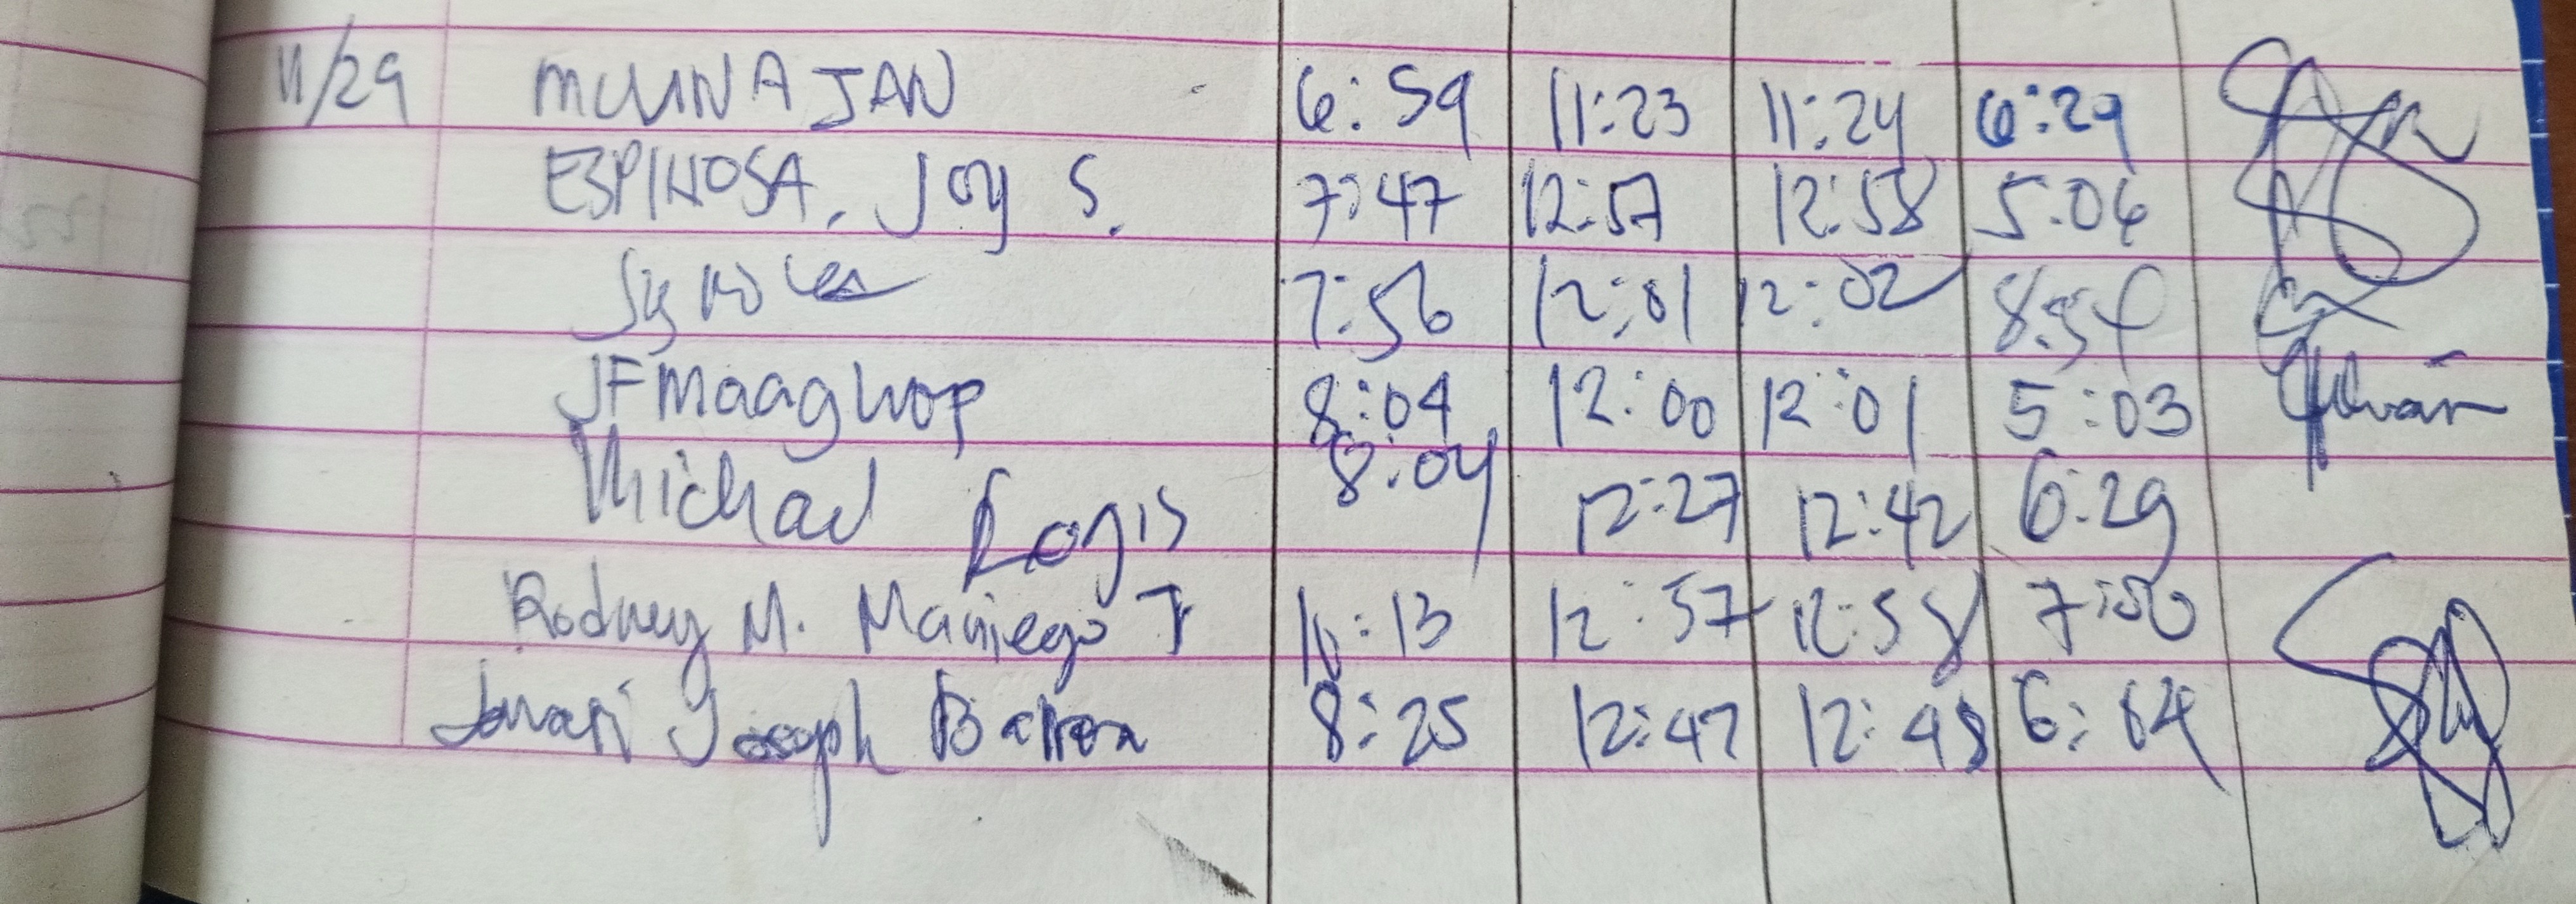 11/29 MUNA JAN 6:59 11:23 11:24 6:29
ESPINOSA, Joy S. 7:47 12:57 12:58 5:06
7:56 12:01 12:02 8:54
JF Maaghop 8:04 12:00 12:01 5:03
Michael Regis 8:04 12:27 12:42 6:29
Rodney M. Maniego Jr 12:57 12:58 7:00
Joseph 8:25 12:47 12:48